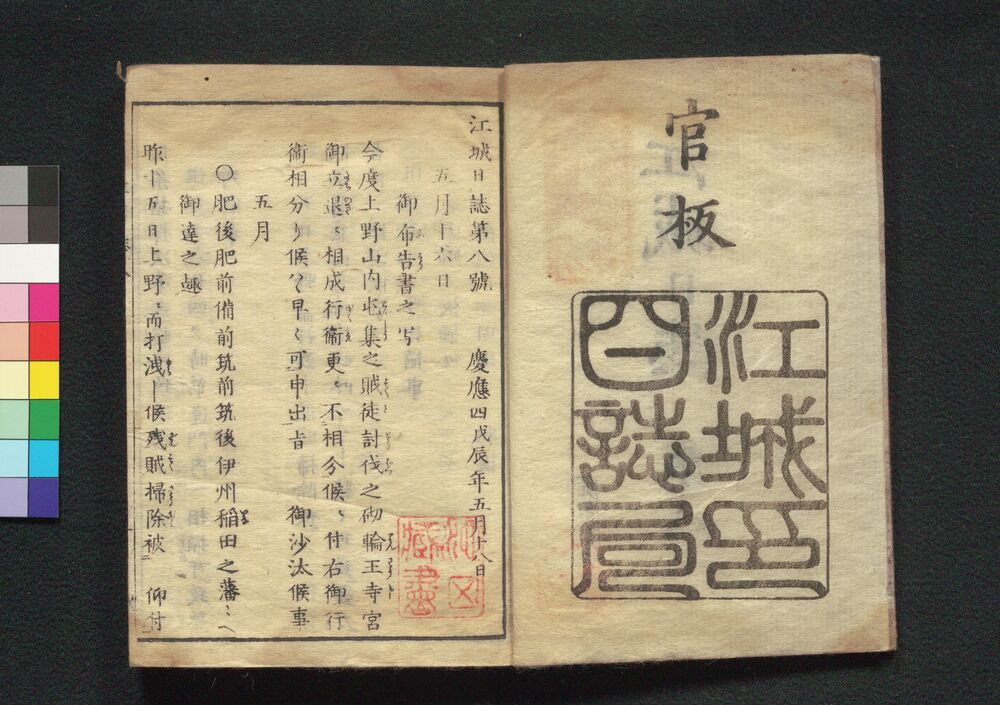 官板
江城
日誌
局印
江城日誌第八號　慶應四戊辰年五月十八日
五月十六日
御布告書之写
今度上野山内屯集之賊徒討伐之砌輪王寺宮
御立退ニ相成行衞更ニ不相分候ニ付右御行
衞相分り候ハヽ早々可申出旨　御沙汰候事
五月
○肥後肥前備前筑前筑後伊州稲田之藩々へ
御達之趣
昨十五日上野ニ而打洩し候残賊掃除被　仰付